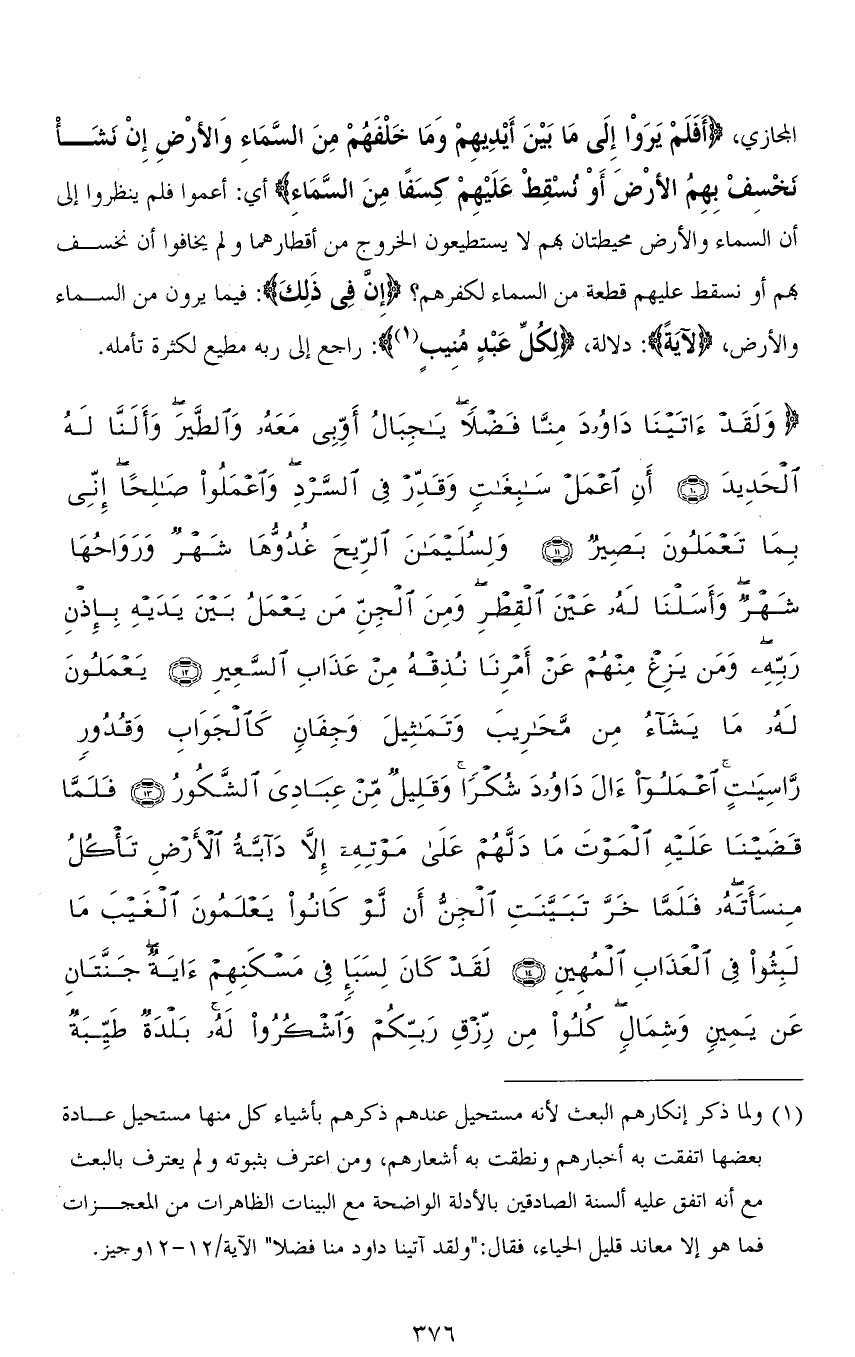 المجازي، ﴿أَفَلَمْ يَرَوْا إِلَى مَا بَيْنَ أَيْدِيهِمْ وَمَا خَلْفَهُمْ مِنَ السَّمَاءِ وَالأَرْضِ إِنْ نَشَـــأْ
نَخْسِفْ بِهِمُ الأَرْضَ أَوْ نُسْقِطْ عَلَيْهِمْ كِسَفًا مِنَ السَّمَاءِ﴾ أي: أعموا فلم ينظروا إلى
أن السماء والأرض محيطتان بهم لا يستطيعون الخروج من أقطارهما ولم يخافوا أن نخســف
بهم أو نسقط عليهم قطعة من السماء لكفرهم؟ ﴿إِنَّ فِي ذَلِكَ﴾: فيما يرون من الســماء
والأرض، ﴿لآيَةً﴾: دلالة، ﴿لِكُلِّ عَبْدٍ مُنِيبٍ(١)﴾: راجع إلى ربه مطيع لكثرة تأمله.
﴿ وَلَقَدْ ءَاتَيْنَا دَاوُۥدَ مِنَّا فَضْلًاۖ يَـٰجِبَالُ أَوِّبِى مَعَهُۥ وَٱلطَّيْرَۖ وَأَلَنَّا لَهُ
ٱلْحَدِيدَ ۝١٠ أَنِ ٱعْمَلْ سَـٰبِغَـٰتٍ وَقَدِّرْ فِى ٱلسَّرْدِۖ وَٱعْمَلُوا۟ صَـٰلِحًاۖ إِنِّى
بِمَا تَعْمَلُونَ بَصِيرٌ ۝١١ وَلِسُلَيْمَـٰنَ ٱلرِّيحَ غُدُوُّهَا شَهْرٌ وَرَوَاحُهَا
شَهْرٌۖ وَأَسَلْنَا لَهُۥ عَيْنَ ٱلْقِطْرِۖ وَمِنَ ٱلْجِنِّ مَن يَعْمَلُ بَيْنَ يَدَيْهِ بِإِذْنِ
رَبِّهِۦۖ وَمَن يَزِغْ مِنْهُمْ عَنْ أَمْرِنَا نُذِقْهُ مِنْ عَذَابِ ٱلسَّعِيرِ ۝١٢ يَعْمَلُونَ
لَهُۥ مَا يَشَآءُ مِن مَّحَـٰرِيبَ وَتَمَـٰثِيلَ وَجِفَانٍ كَٱلْجَوَابِ وَقُدُورٍ
رَّاسِيَـٰتٍۚ ٱعْمَلُوٓا۟ ءَالَ دَاوُۥدَ شُكْرًاۚ وَقَلِيلٌ مِّنْ عِبَادِىَ ٱلشَّكُورُ ۝١٣ فَلَمَّا
قَضَيْنَا عَلَيْهِ ٱلْمَوْتَ مَا دَلَّهُمْ عَلَىٰ مَوْتِهِۦٓ إِلَّا دَآبَّةُ ٱلْأَرْضِ تَأْكُلُ
مِنسَأَتَهُۥۖ فَلَمَّا خَرَّ تَبَيَّنَتِ ٱلْجِنُّ أَن لَّوْ كَانُوا۟ يَعْلَمُونَ ٱلْغَيْبَ مَا
لَبِثُوا۟ فِى ٱلْعَذَابِ ٱلْمُهِينِ ۝١٤ لَقَدْ كَانَ لِسَبَإٍ فِى مَسْكَنِهِمْ ءَايَةٌۖ جَنَّتَانِ
عَن يَمِينٍ وَشِمَالٍۖ كُلُوا۟ مِن رِّزْقِ رَبِّكُمْ وَٱشْكُرُوا۟ لَهُۥۚ بَلْدَةٌ طَيِّبَةٌ
(١) ولما ذكر إنكارهم البعث لأنه مستحيل عندهم ذكرهم بأشياء كل منها مستحيل عـــادة
بعضها اتفقت به أخبارهم ونطقت به أشعارهم، ومن اعترف بثبوته ولم يعترف بالبعث
مع أنه اتفق عليه ألسنة الصادقين بالأدلة الواضحة مع البينات الظاهرات من المعجـــزات
فما هو إلا معاند قليل الحياء، فقال:"ولقد آتينا داود منا فضلا" الآية/١٢-١٢وجيز.
٣٧٦